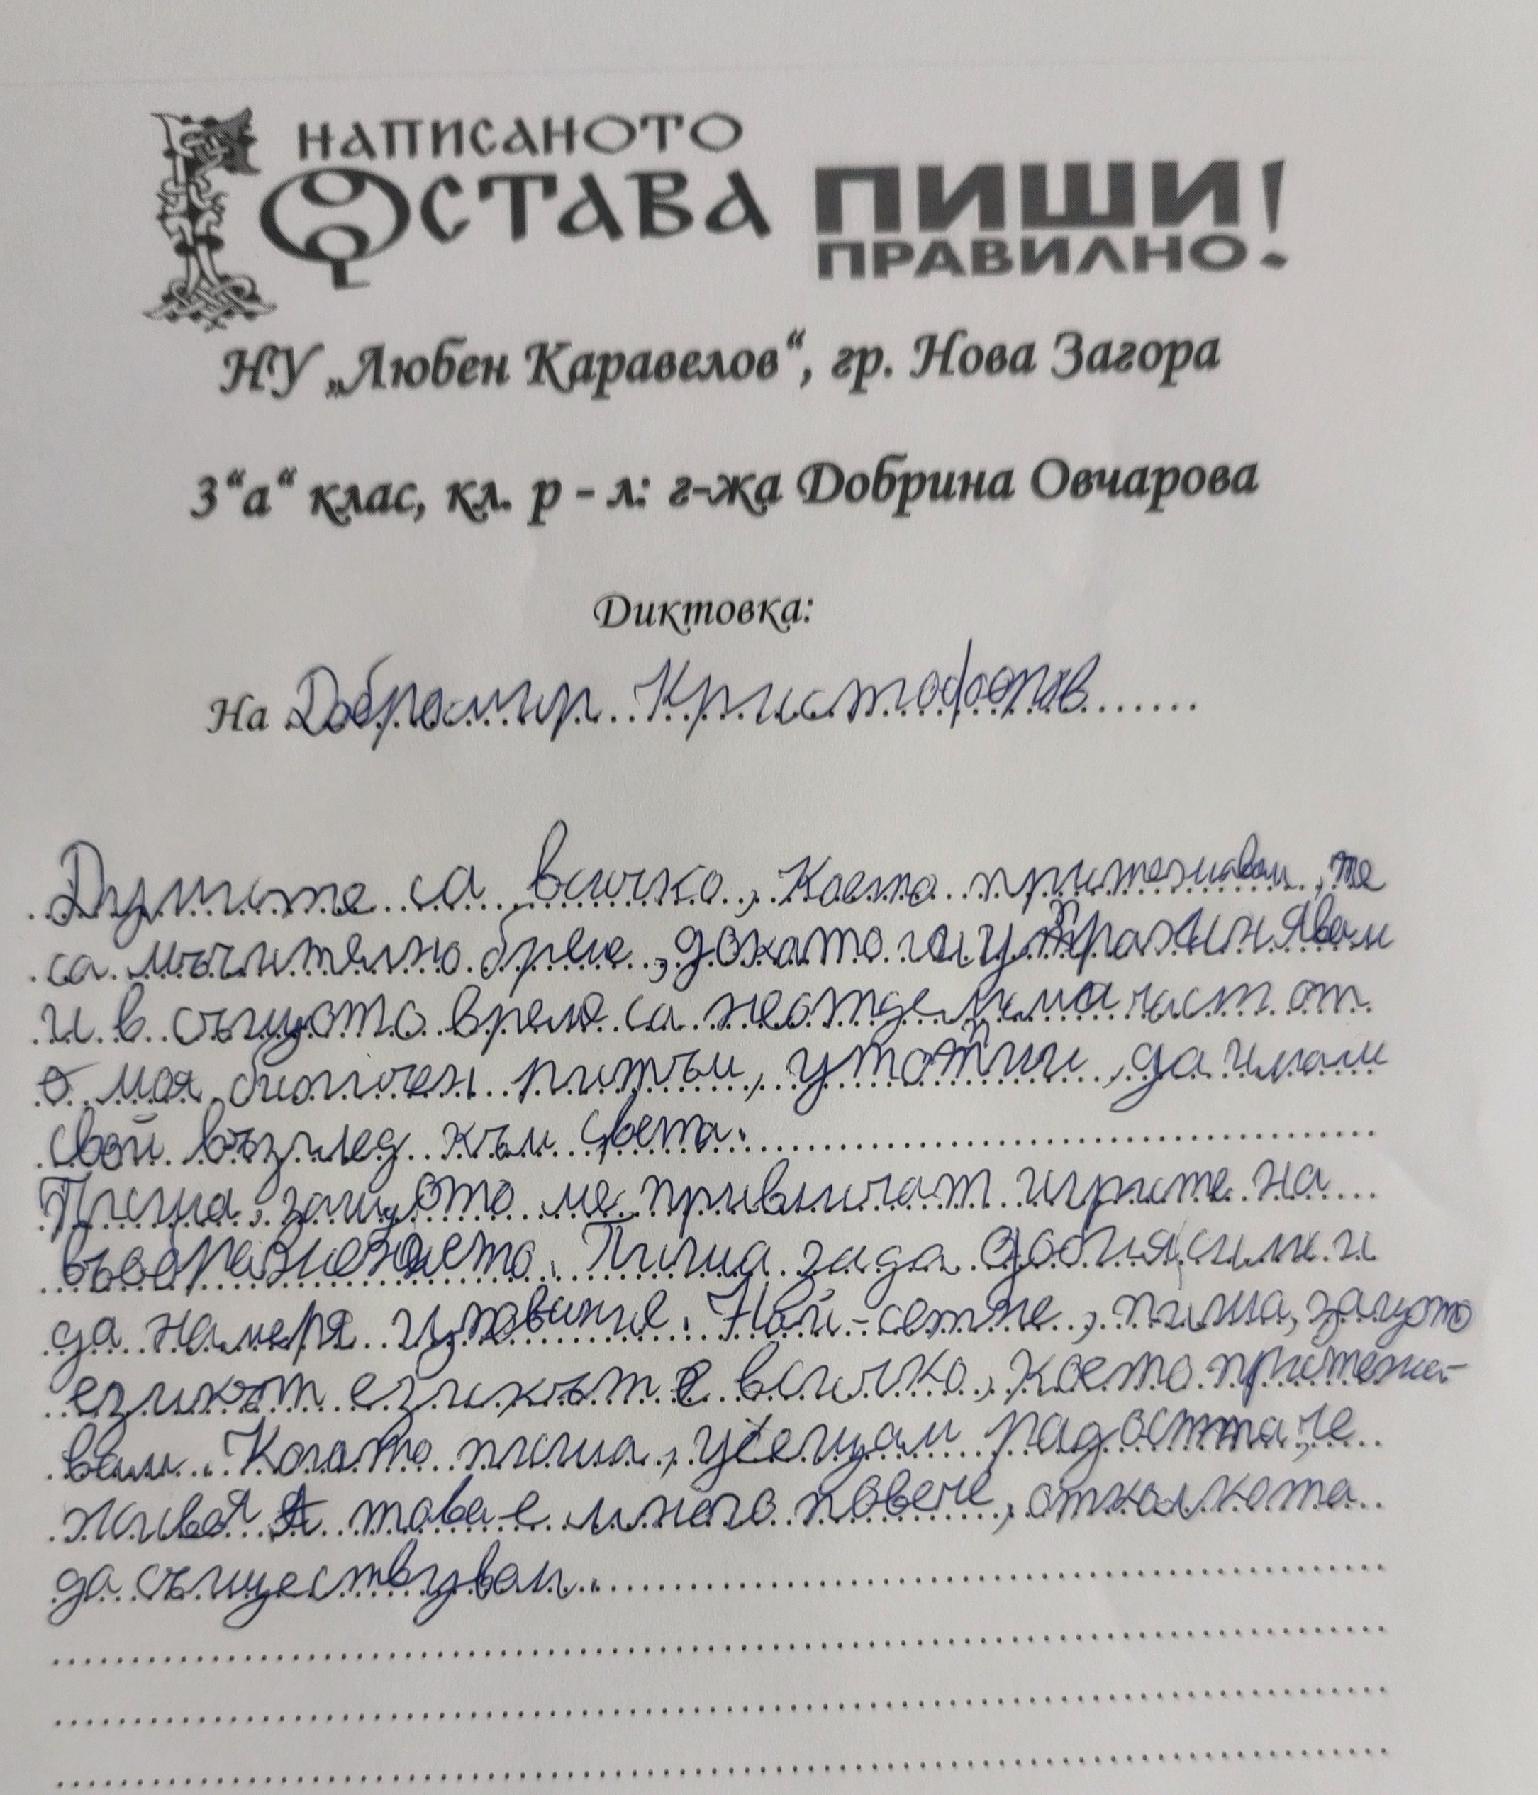 НАПИСАНОТО
ОСТАВА
ПИШИ!
ПРАВИЛНО!
НУ „Любен Каравелов“, гр. Нова Загора
3“а“ клас, кл. р - л: г-жа Добрина Овчарова
Диктовка:
На Добромир Кристофоров
Думите са всичко, Което притежавам, те
са мъчително брене, докато ги упражнявам
и в същото време са неотделима част от
моя биологчен ритъм, утопии, да имам
свой възглед към света.
Пиша, защото ме привличат игрите на
въображението. Пиша за да добия сили и
да намеря упование. Най-сетне, пиша, защото
езикът езикът е всичко, което притежа-
вам. Когато пиша, усещам радостта, че
живея А това е много повече, отколкото
да съществувам.